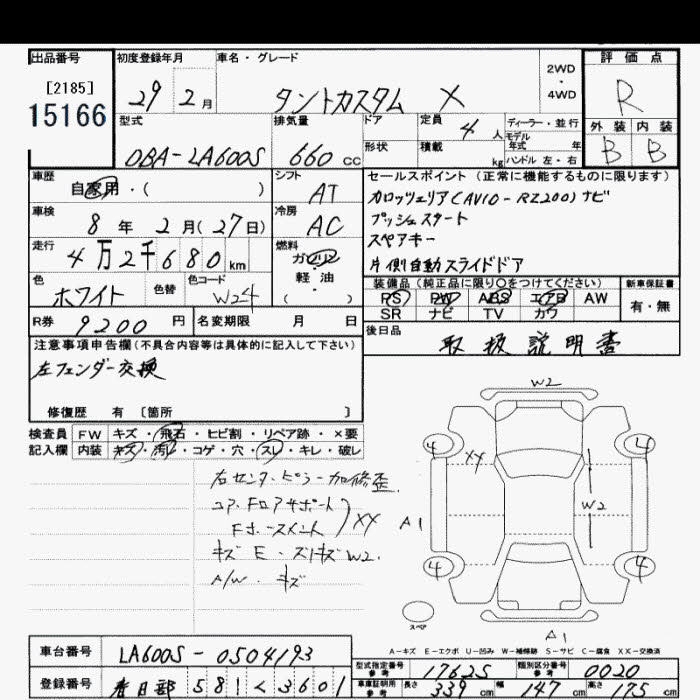 出品番号 初度登録年月 車名・グレード 2WD・4WD 評価点
[2185]
15166
29 2月 タントカスタム X R
型式 排気量 ドア 定員 4人 ディーラー・並行 外装 内装
モデル年式 年式
形状 積載 kg ハンドル 左・右 B B
DBA-LA600S 660cc
車歴 シフト セールスポイント(正常に機能するものに限ります)
自家用・( ) AT カロッツェリア(AVIC-RZ200)ナビ
車検 冷房 プッシュスタート
8年2月(27日) AC スペアキー
走行 燃料 片側自動スライドドア
4万2千680km ガソリン・軽油・( )
色 色替 色コード 装備品(純正品に限り○をつけてください) 新車保証書
ホワイト W24 PS PW ABS エアB AW 有・無
SR ナビ TV カワ
R券 9200円 名変期限 月 日 後日品
取扱説明書
注意事項申告欄(不具合内容等は具体的に記入して下さい)
左フェンダー交換
修復歴 有 〔箇所 〕
検査員記入欄 FW キズ・飛石・ヒビ割・リペア跡・×要
内装 キズ・汚レ・コゲ・穴・スレ・キレ・破レ
右センターピラー加修歪
コア.Fロアサポート
Fホースメント
XX
キズ E・スリキズ W2.
A/W・キズ
W2
4 4
XX
A1 W2
4 4
スペア
A1
A-キズ E-エクボ U-凹み W-補修跡 S-サビ C-腐食 XX-交換済
車台番号 LA600S-0504193
型式指定番号 参考 17625 類別区分番号 参考 0020
登録番号 春日部 581 く 3601
車庫証明用 参考 長さ 339cm 幅 147cm 高さ 175cm